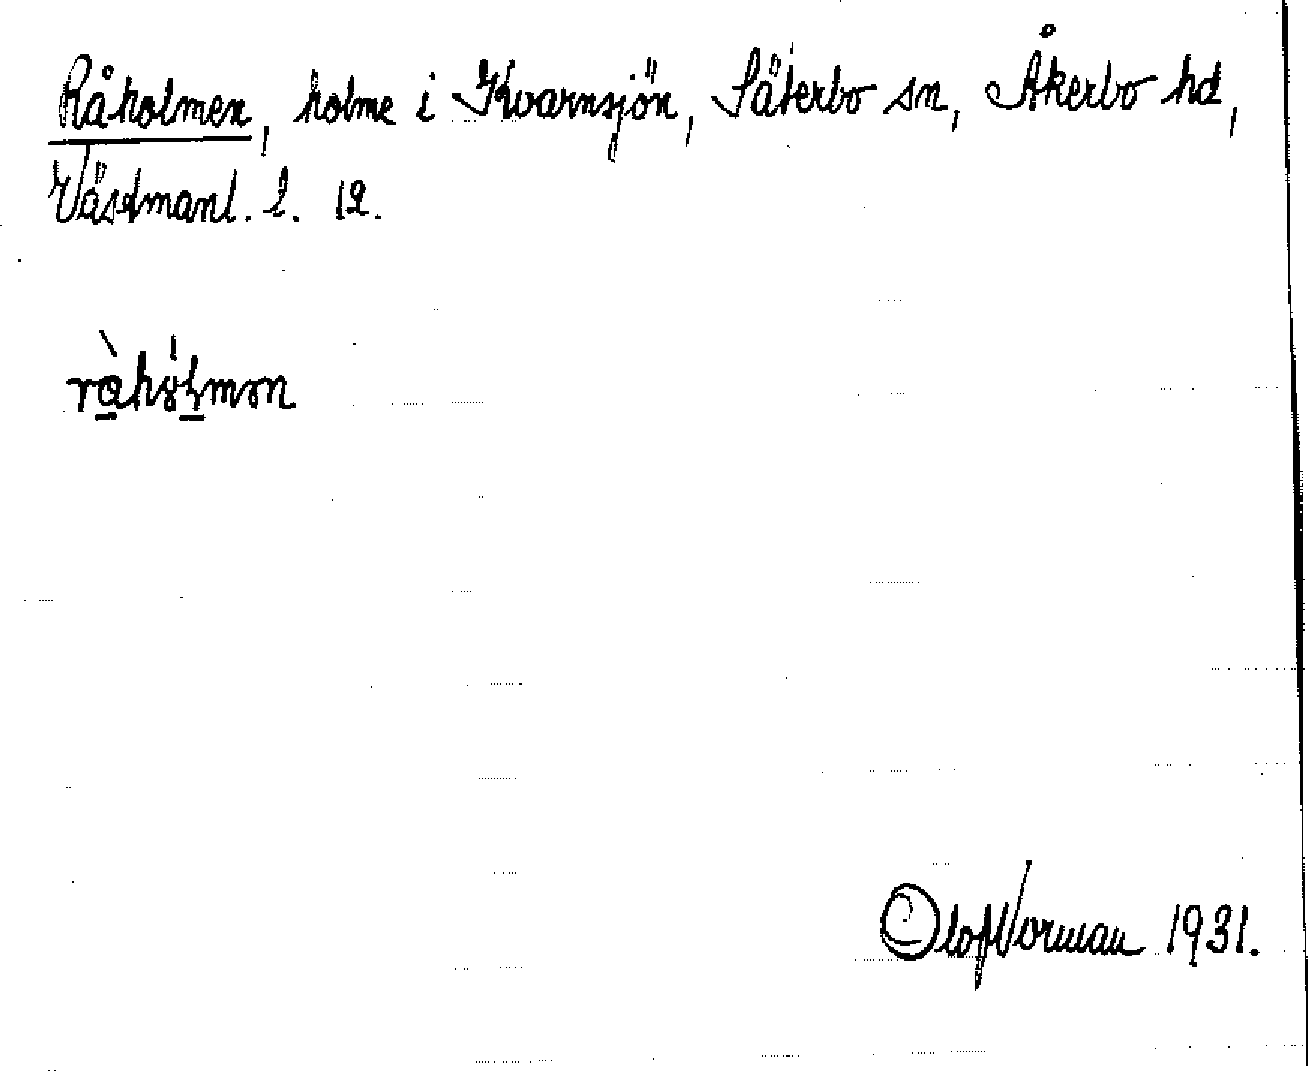 Råholmen, holme i Kvarnsjön, Säterbo sn, Åkerbo hd,
Västmanl. l. 12.
Olof Norman 1931.